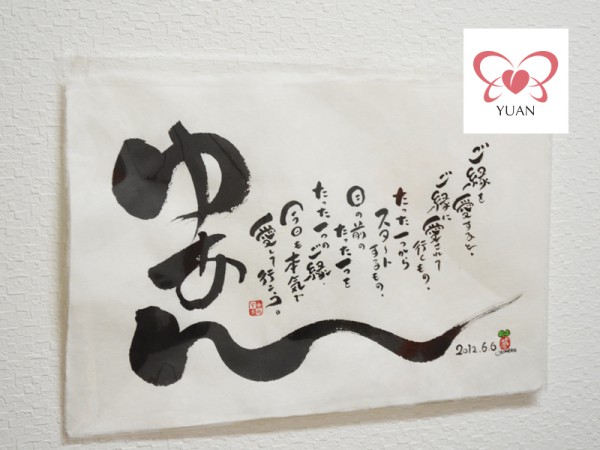 YUAN
ゆあん
ご縁を愛すると、
ご縁に愛されて
行くもの。
たった一つから
スタートするもの。
目の前の
たった一つを
たった一つのご縁、
今日も本気で
愛して行こう。
2012.6.6